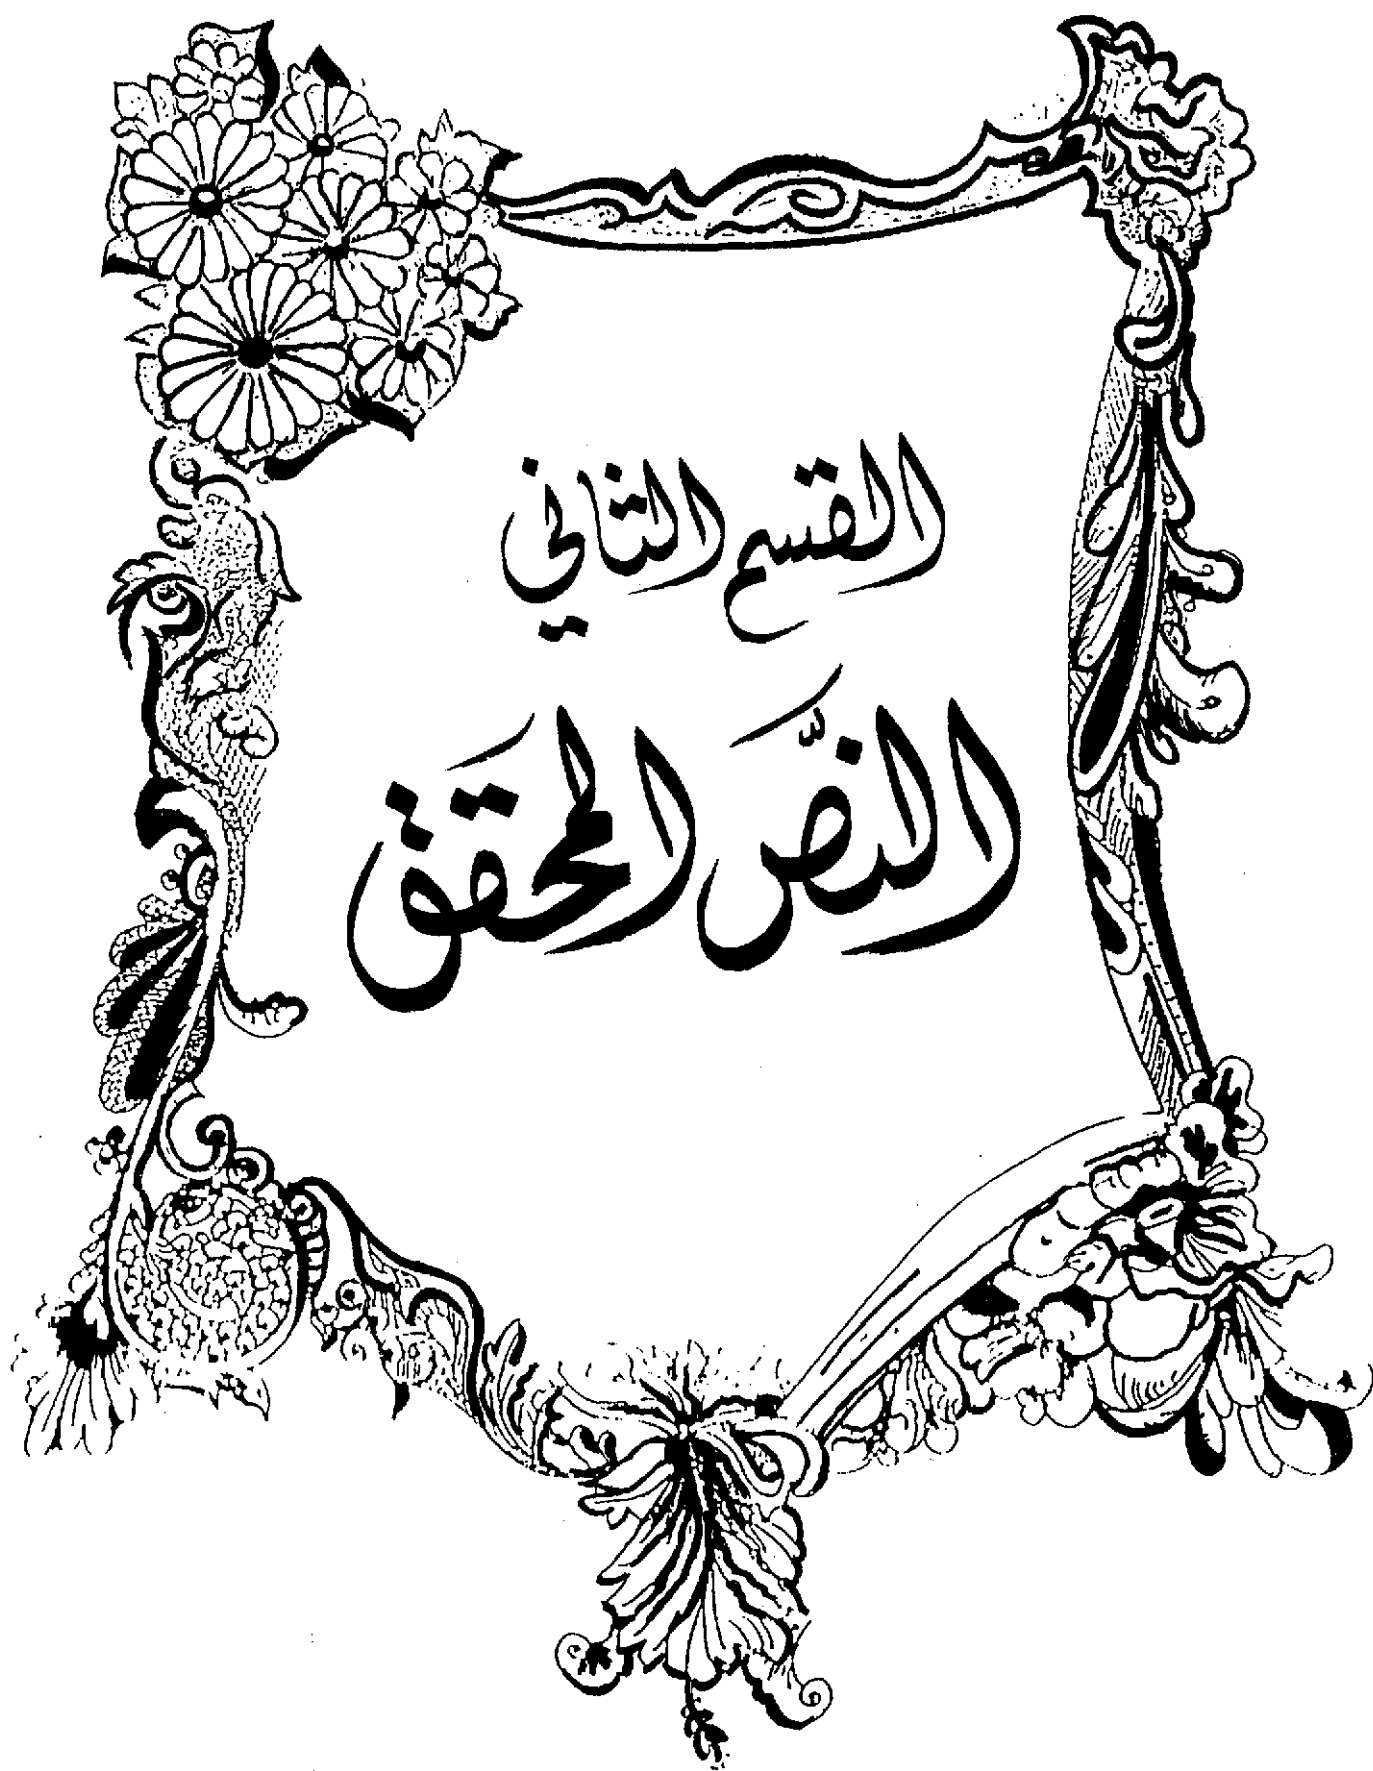 القسم الثاني
النصَّ المحقق